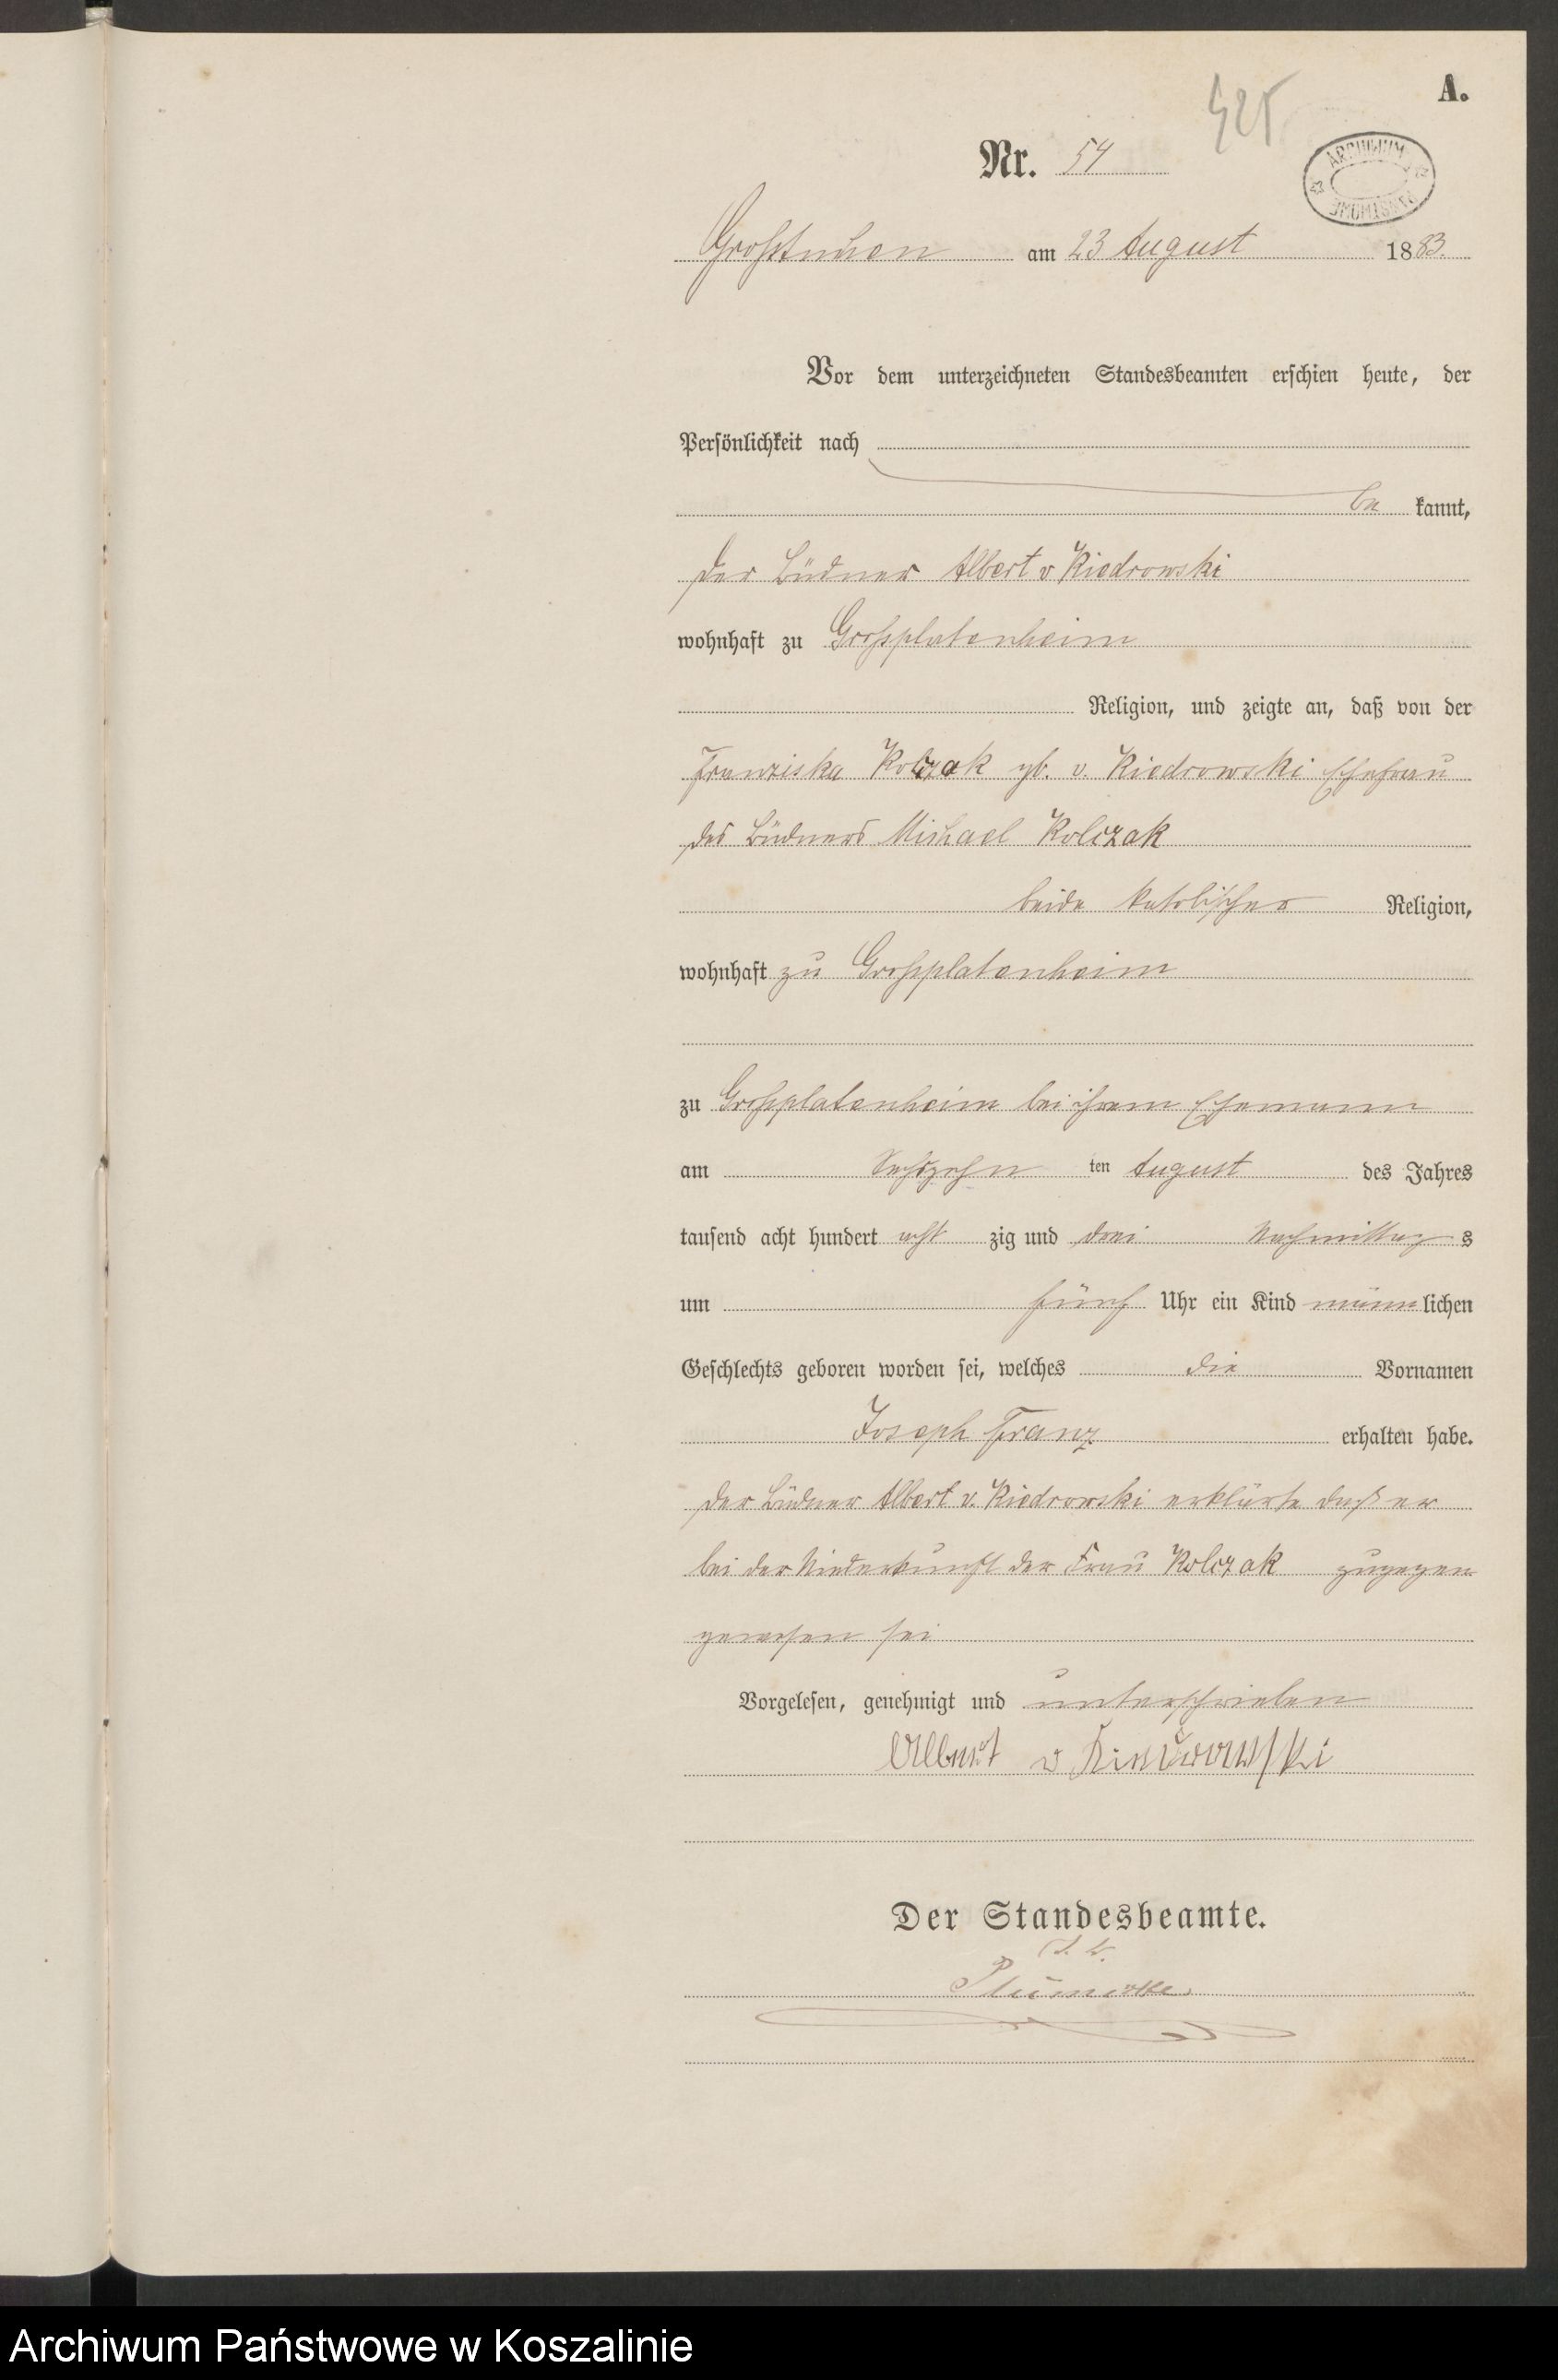 A.
425
Nr. 54
ARCHIWUM PAŃSTWOWE
Großtuchen am 23 August 1883.
Vor dem unterzeichneten Standesbeamten erschien heute, der
Persönlichkeit nach
be kannt,
der Büdner Albert v Kiedrowski
wohnhaft zu Großplatenheim
Religion, und zeigte an, daß von der
Franziska Kolczak gb. v. Kiedrowski Ehefrau
des Büdners Michael Kolczak
beide katolischer Religion,
wohnhaft zu Großplatenheim
zu Großplatenheim bei ihrem Ehemann
am Sechszehn ten August des Jahres
tausend acht hundert acht zig und drei Nachmittag s
um fünf Uhr ein Kind männlichen
Geschlechts geboren worden sei, welches die Vornamen
Joseph Franz erhalten habe.
der Büdner Albert v. Kiedrowski erklärte daß er
bei der Niederkunft der Frau Kolczak zugegen
gewesen sei
Vorgelesen, genehmigt und unterschrieben
Albert v Kiedrowski
Der Standesbeamte.
Archiwum Państwowe w Koszalinie